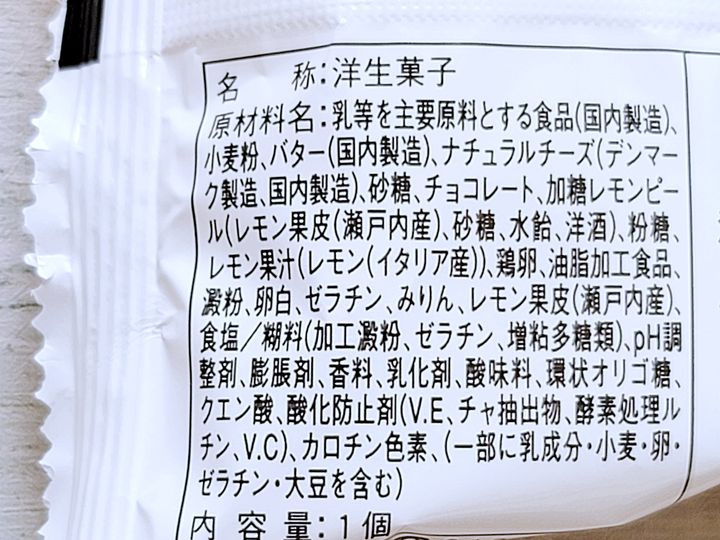 名 称:洋生菓子
原材料名:乳等を主要原料とする食品(国内製造)、
小麦粉、バター(国内製造)、ナチュラルチーズ(デンマー
ク製造、国内製造)、砂糖、チョコレート、加糖レモンピー
ル(レモン果皮(瀬戸内産)、砂糖、水飴、洋酒)、粉糖、
レモン果汁(レモン(イタリア産))、鶏卵、油脂加工食品、
澱粉、卵白、ゼラチン、みりん、レモン果皮(瀬戸内産)、
食塩/糊料(加工澱粉、ゼラチン、増粘多糖類)、pH調
整剤、膨脹剤、香料、乳化剤、酸味料、環状オリゴ糖、
クエン酸、酸化防止剤(V.E、チャ抽出物、酵素処理ル
チン、V.C)、カロチン色素、(一部に乳成分・小麦・卵・
ゼラチン・大豆を含む)
内 容 量:1個